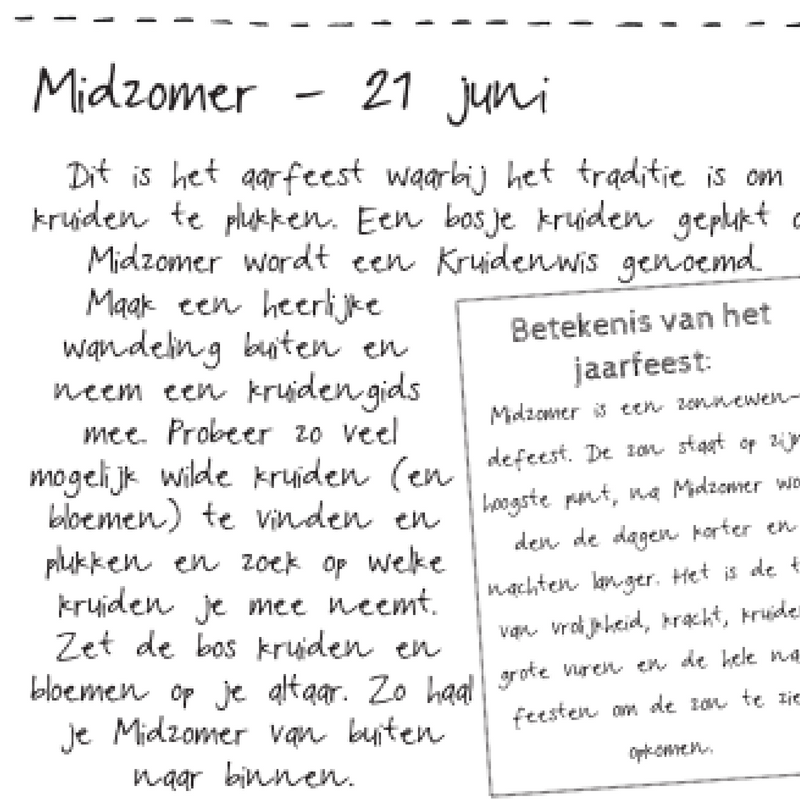 Midzomer - 21 juni
Dit is het aarfeest waarbij het traditie is om
kruiden te plukken. Een bosje kruiden geplukt
Midzomer wordt een Kruidenwis genoemd.
Maak een heerlijke
wandeling buiten en
neem een kruidengids
mee. Probeer zo veel
mogelijk wilde kruiden (en
bloemen) te vinden en
plukken en zoek op welke
kruiden je mee neemt.
Zet de bos kruiden en
bloemen op je altaar. Zo haal
je Midzomer van buiten
naar binnen.
Betekenis van het
jaarfeest:
Midzomer is een zonnewen-
defeest. De zon staat op
hoogste punt, na Midzomer
den de dagen korter en
nachten langer. Het is de
van vrolijkheid, kracht,
grote vuren en de hele
feesten om de zon te
opkomen.